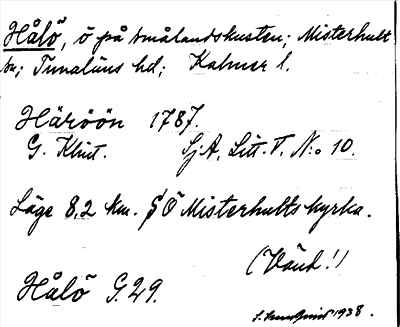 Hålö, ö på Smålandskusten; Misterhult
sn; Tunaläns hd; Kalmar l.
Häröön 1787.
G. Klint. SjA, Litt. T. N:o 10.
Läge 8,2 km. SÖ Misterhults kyrka.
(Vänd!)
Hålö G.29.
1938.